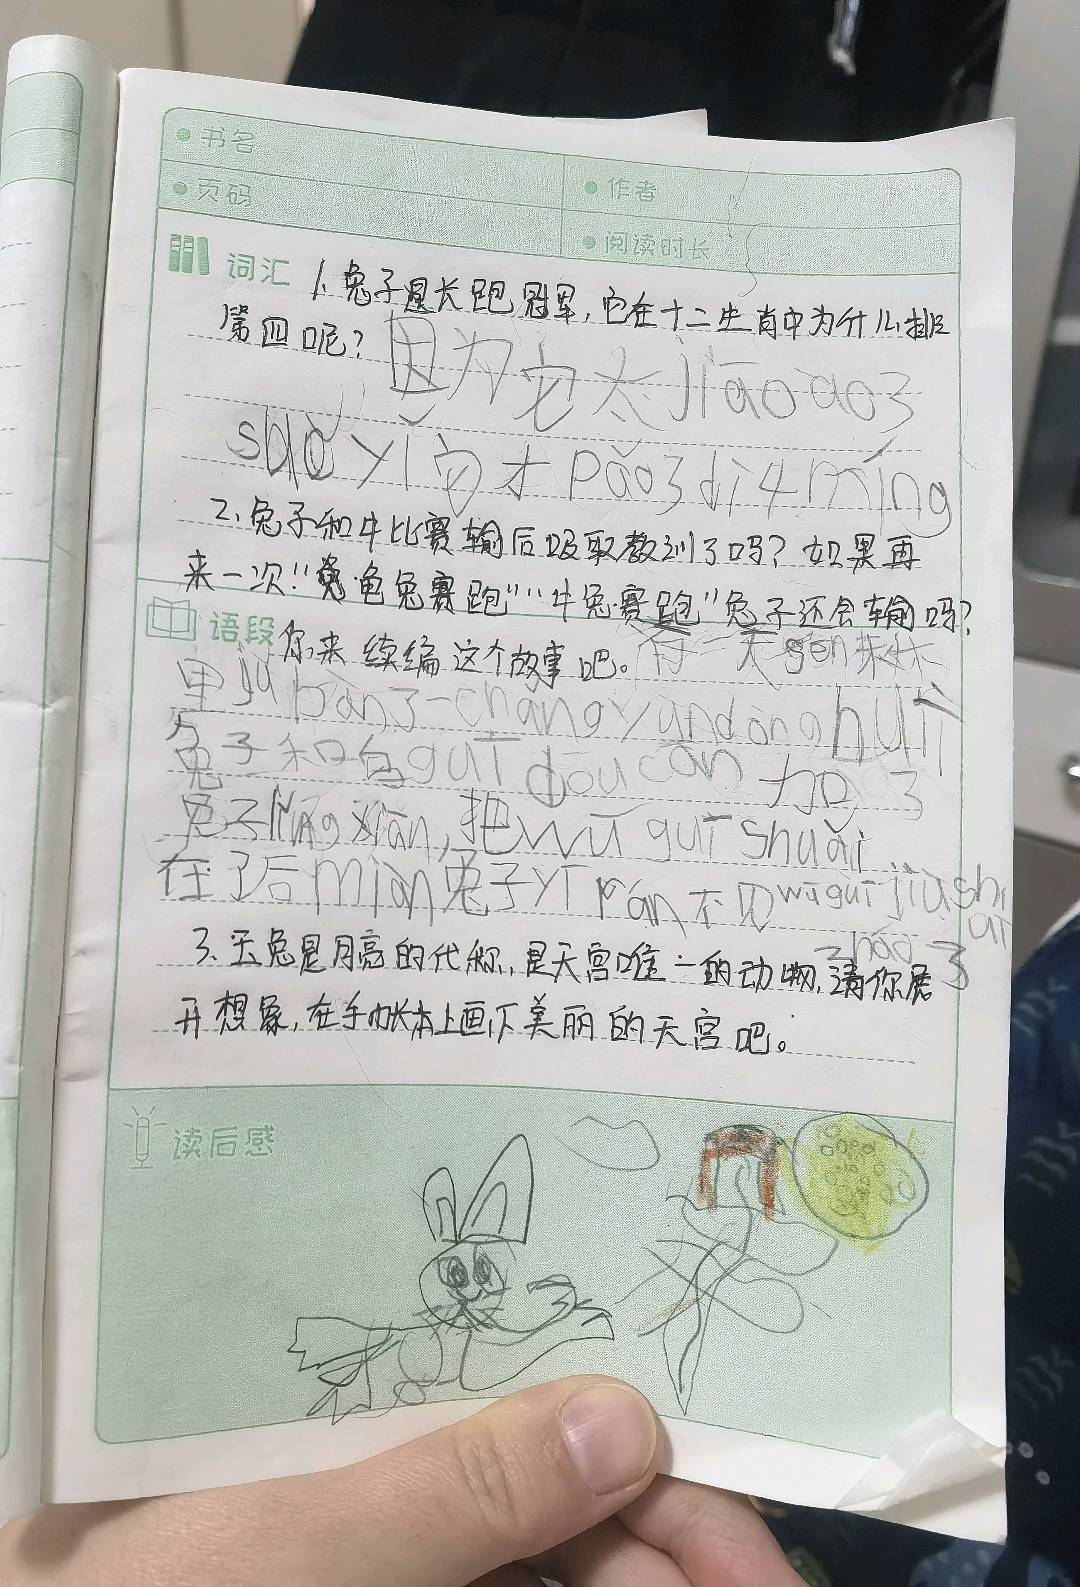 书名
作者
页码
阅读时长
词汇 1、兔子是长跑冠军,它在十二生肖中为什儿排
第四呢? 因为它太jiāoào了
suǒ yǐ 才pǎo了dì4míng
2、兔子和牛比赛输后吸取教训了吗?如果再
来一次"龟兔赛跑""牛兔赛跑"兔子还会输吗?
语段 你来续编这个故事吧。有一天sēn林
里jǔbàn了一chǎngyùndònghuì
兔子和乌guī dōu cān加了
兔子lǐngxiān,把wū guī shuǎi
在了后miàn兔子yī kàn不见wūguī jiù shuì
zháo了
3、玉兔是月亮的代称,是天宫唯一的动物,请你展
开想象,在手帐本上画下美丽的天宫吧。
读后感